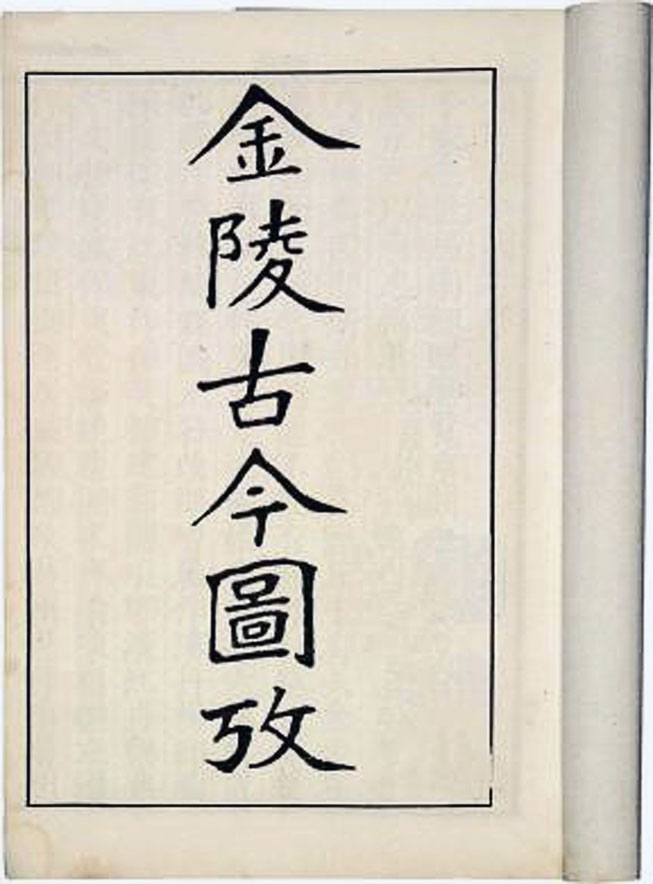 金陵古今圖攷